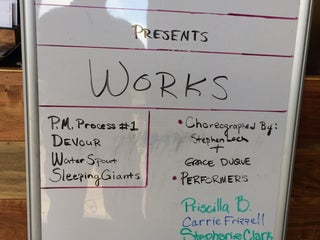 PRESENTS
WORKS
P.M. Process #1
DEVOUR
Water Spout
Sleeping Giants
• Choreographed By:
Stephen Loch
+
GRACE DUQUE
• PERFORMERS
Priscilla B
Carrie Frizzell
Stephanie Clark